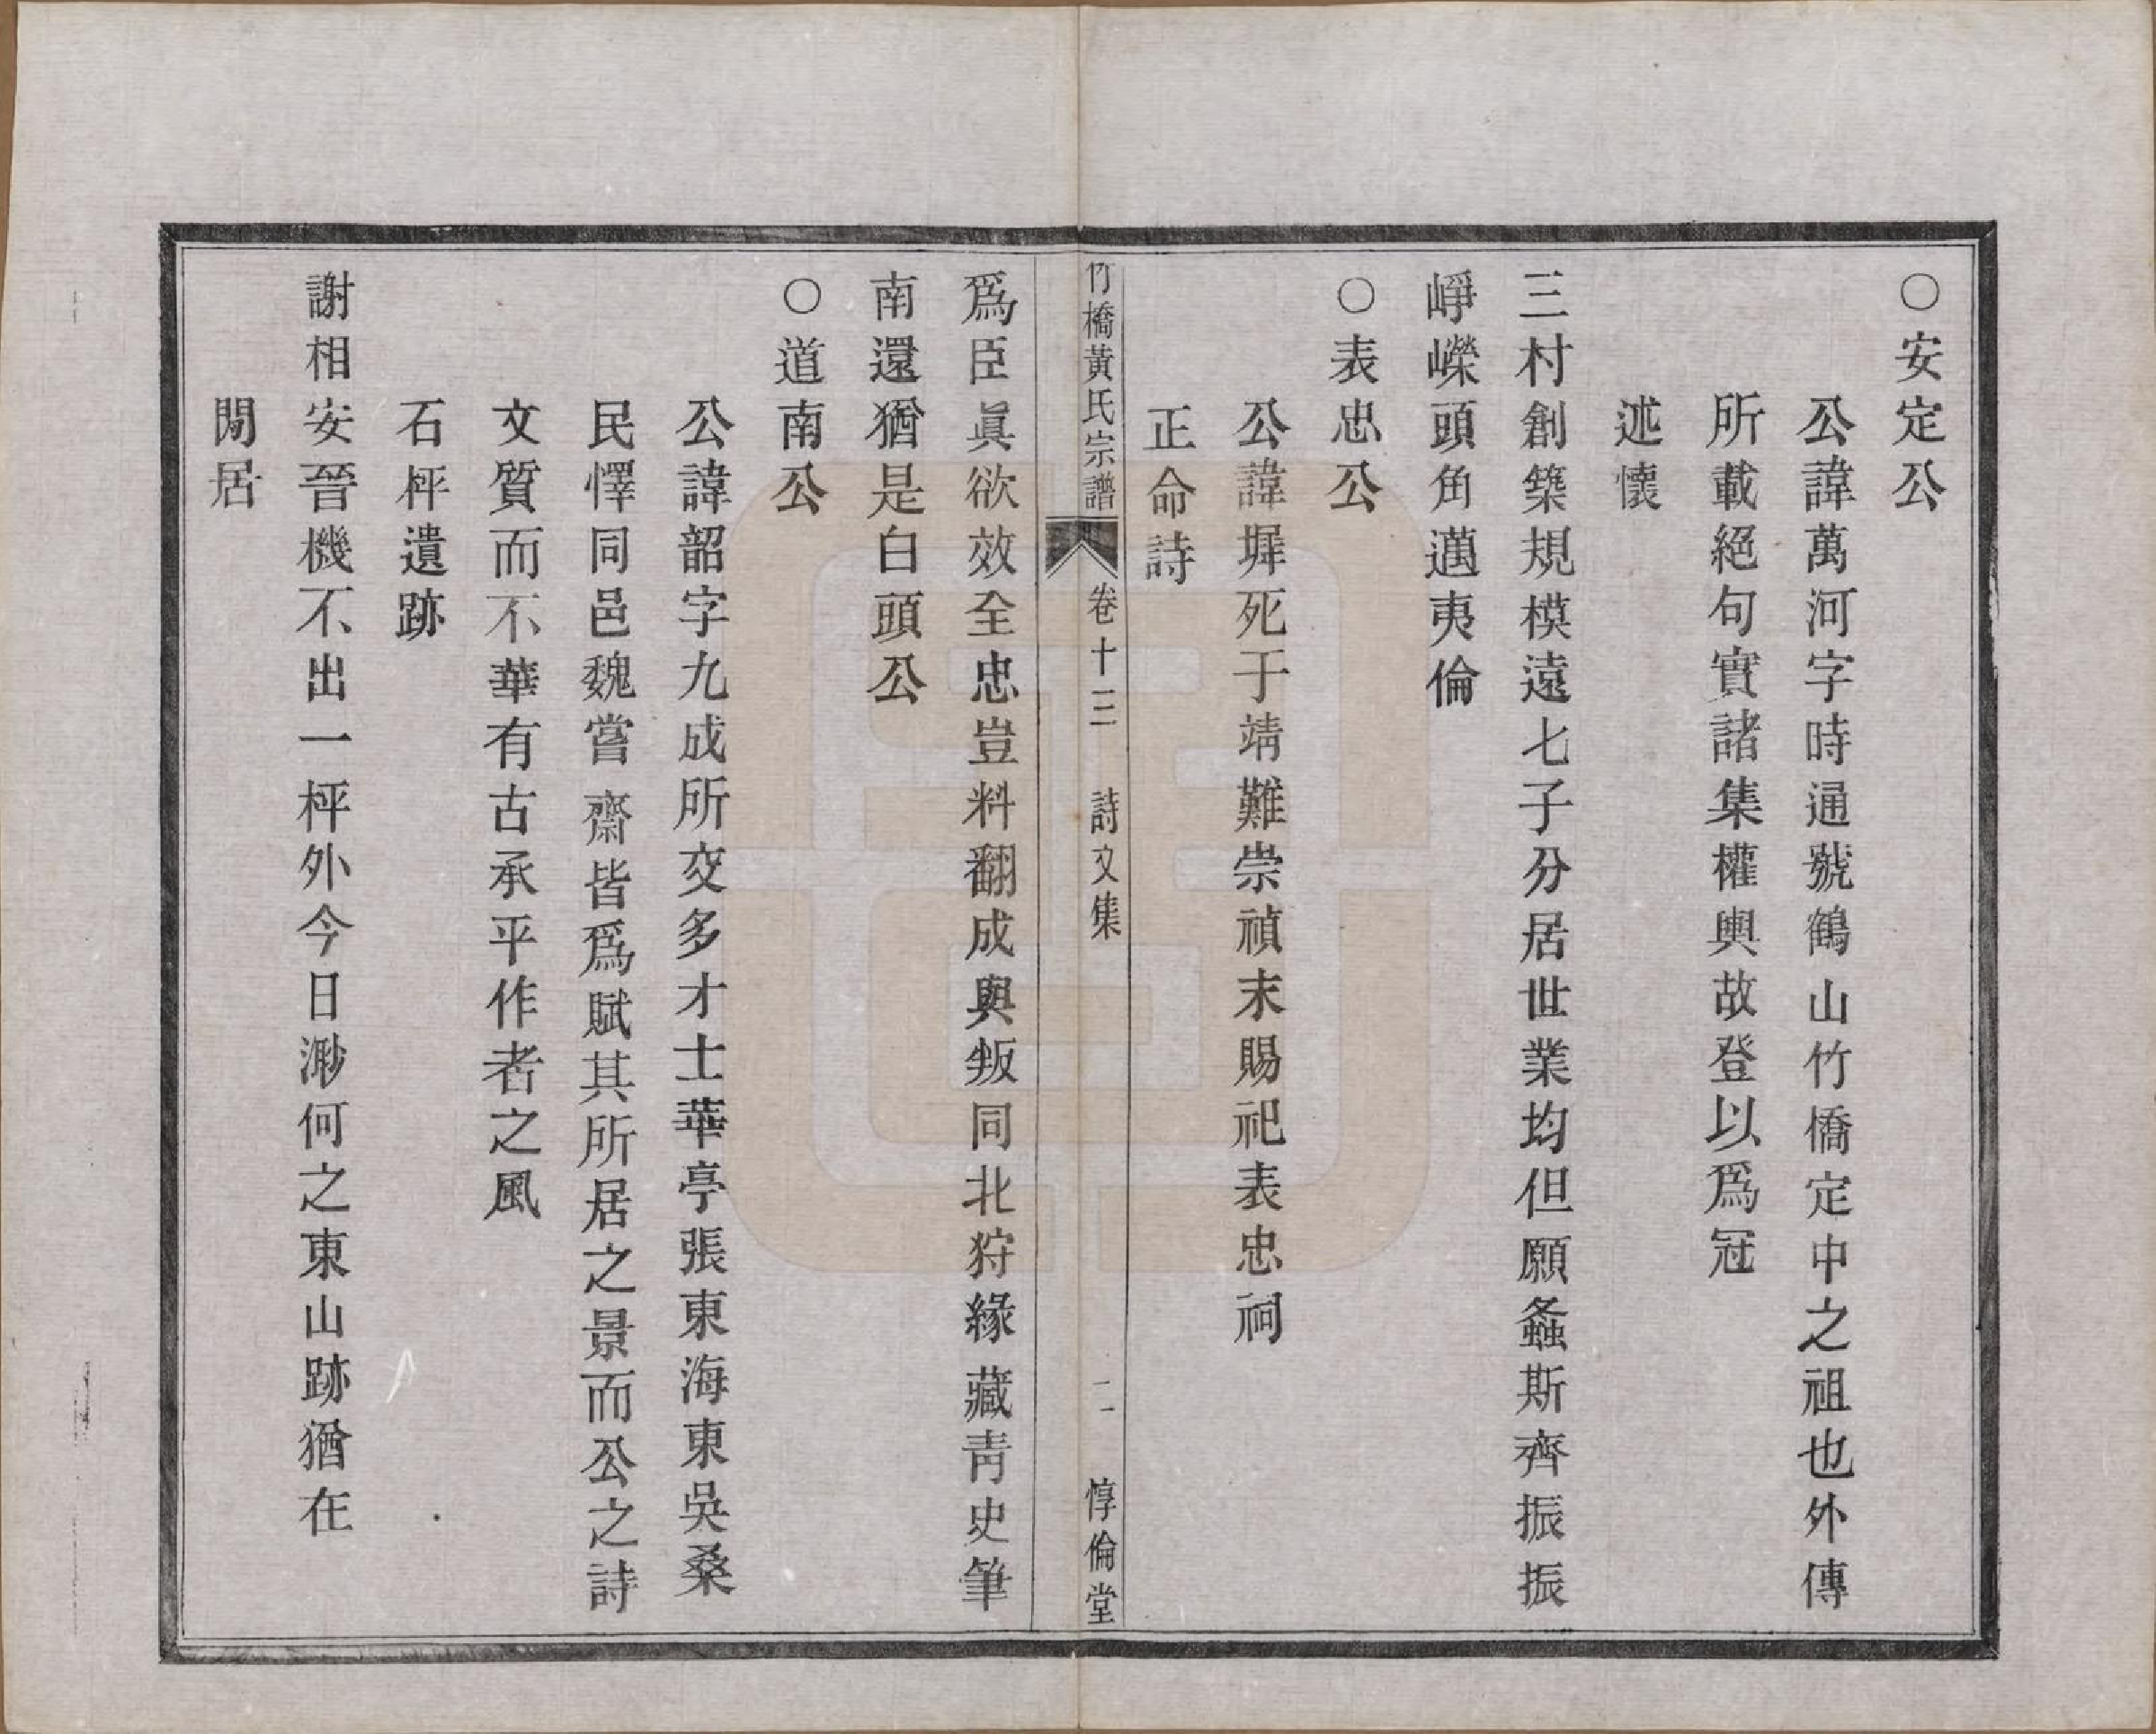 ○安定公
公諱萬河字時通號鶴山竹橋定中之祖也外傳
所載絕句實諸集權輿故登以爲冠
述懷
三村創築規模遠七子分居世業均但願螽斯齊振振
崢嶸頭角邁夷倫
○表忠公
公諱墀死于靖難崇禎末賜祀表忠祠
正命詩
竹橋黃氏宗譜 卷十三 詩文集 二 惇倫堂
爲臣眞欲效全忠豈料翻成與叛同北狩緣藏靑史筆
南還猶是白頭公
○道南公
公諱韶字九成所交多才士華亭張東海東吳桑
民懌同邑魏嘗齋皆爲賦其所居之景而公之詩
文質而不華有古承平作者之風
石枰遺跡
謝相安晉機不出一枰外今日渺何之東山跡猶在
閒居